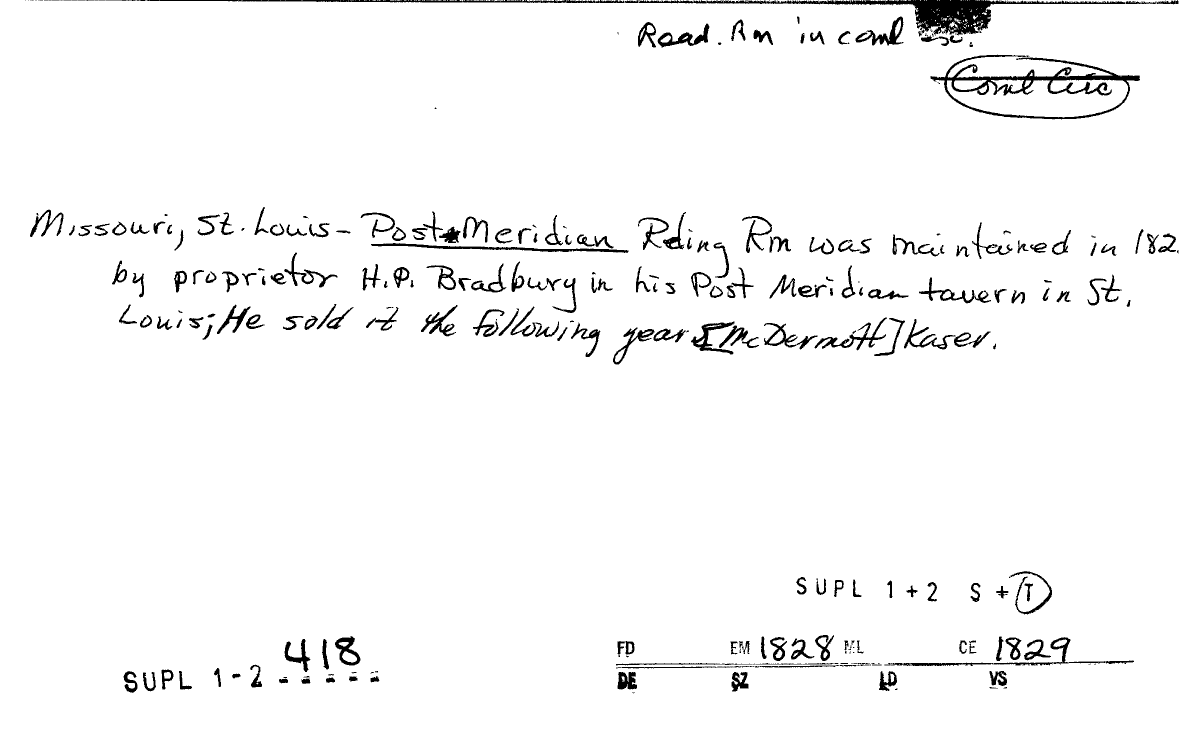 Read. Rm in coml
Coml Circ
Missouri, St. Louis - Post Meridian Rding Rm was maintained in 182
by proprietor H.P. Bradbury in his Post Meridian tavern in St.
Louis; He sold it the following year [McDermott] Kaser.
SUPL 1+2 S + T
SUPL 1-2 418
FD EM 1828 ML CE 1829
DE SZ LD VS